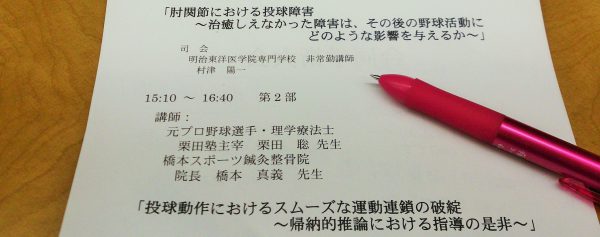 「肘関節における投球障害
～治癒しえなかった障害は、その後の野球活動に
どのような影響を与えるか～」
司 会
明治東洋医学院専門学校 非常勤講師
村津 陽一
15:10 ～ 16:40 第２部
講師：
元プロ野球選手・理学療法士
栗田塾主宰 栗田 聡 先生
橋本スポーツ鍼灸整骨院
院長 橋本 真義 先生
「投球動作におけるスムーズな運動連鎖の破綻
～帰納的推論における指導の是非～」